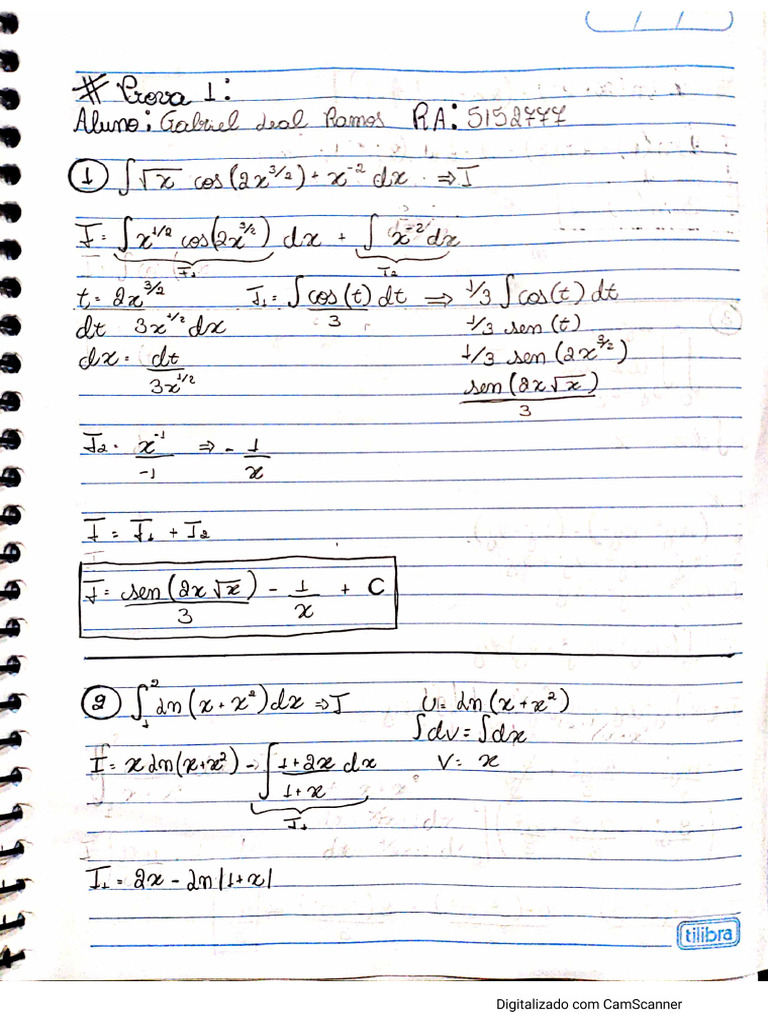 # Prova 1:
Aluno: Gabriel Leal Ramos RA: 5152777
① ∫√x cos(2x^3/2) + x^-2 dx ⇒ I
I = ∫x^1/2 cos(2x^3/2) dx + ∫ x^-2 dx
I₁ I₂
t = 2x^3/2 I₁ = ∫cos(t) dt / 3 ⇒ 1/3 ∫cos(t) dt
dt 3x^1/2 dx 1/3 sen(t)
dx = dt / 3x^1/2 1/3 sen(2x^3/2)
sen(2x√x) / 3
I₂ = x^-1 / -1 ⇒ - 1 / x
I = I₁ + I₂
I = sen(2x√x) / 3 - 1 / x + C
② ∫₁² ln(x + x²) dx ⇒ I U = ln(x + x²)
∫dv = ∫dx
I = x ln(x+x²) - ∫ 1+2x / 1+x dx V = x
I₁
I₁ = 2x - ln|1+x|
tilibra
Digitalizado com CamScanner